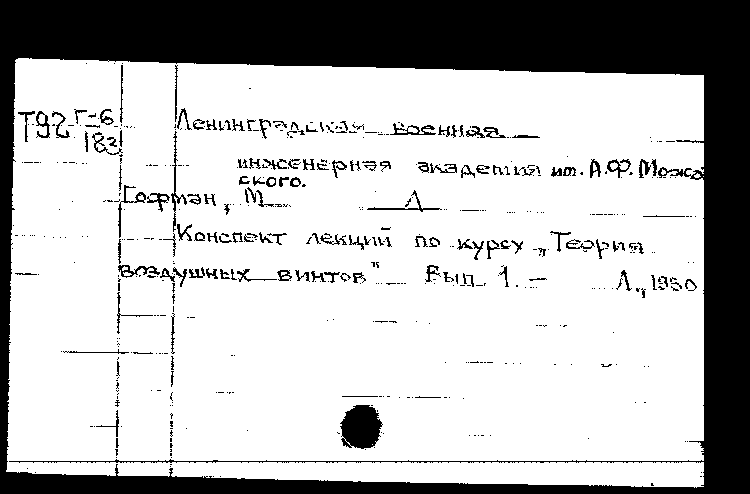 Т92 Г-6
183
Ленинградская военная
инженерная академия им. А.Ф. Можа
ского.
Гофман, М Л
Конспект лекций по курсу „Теория
воздушных винтов" Вып 1. – Л., 1930